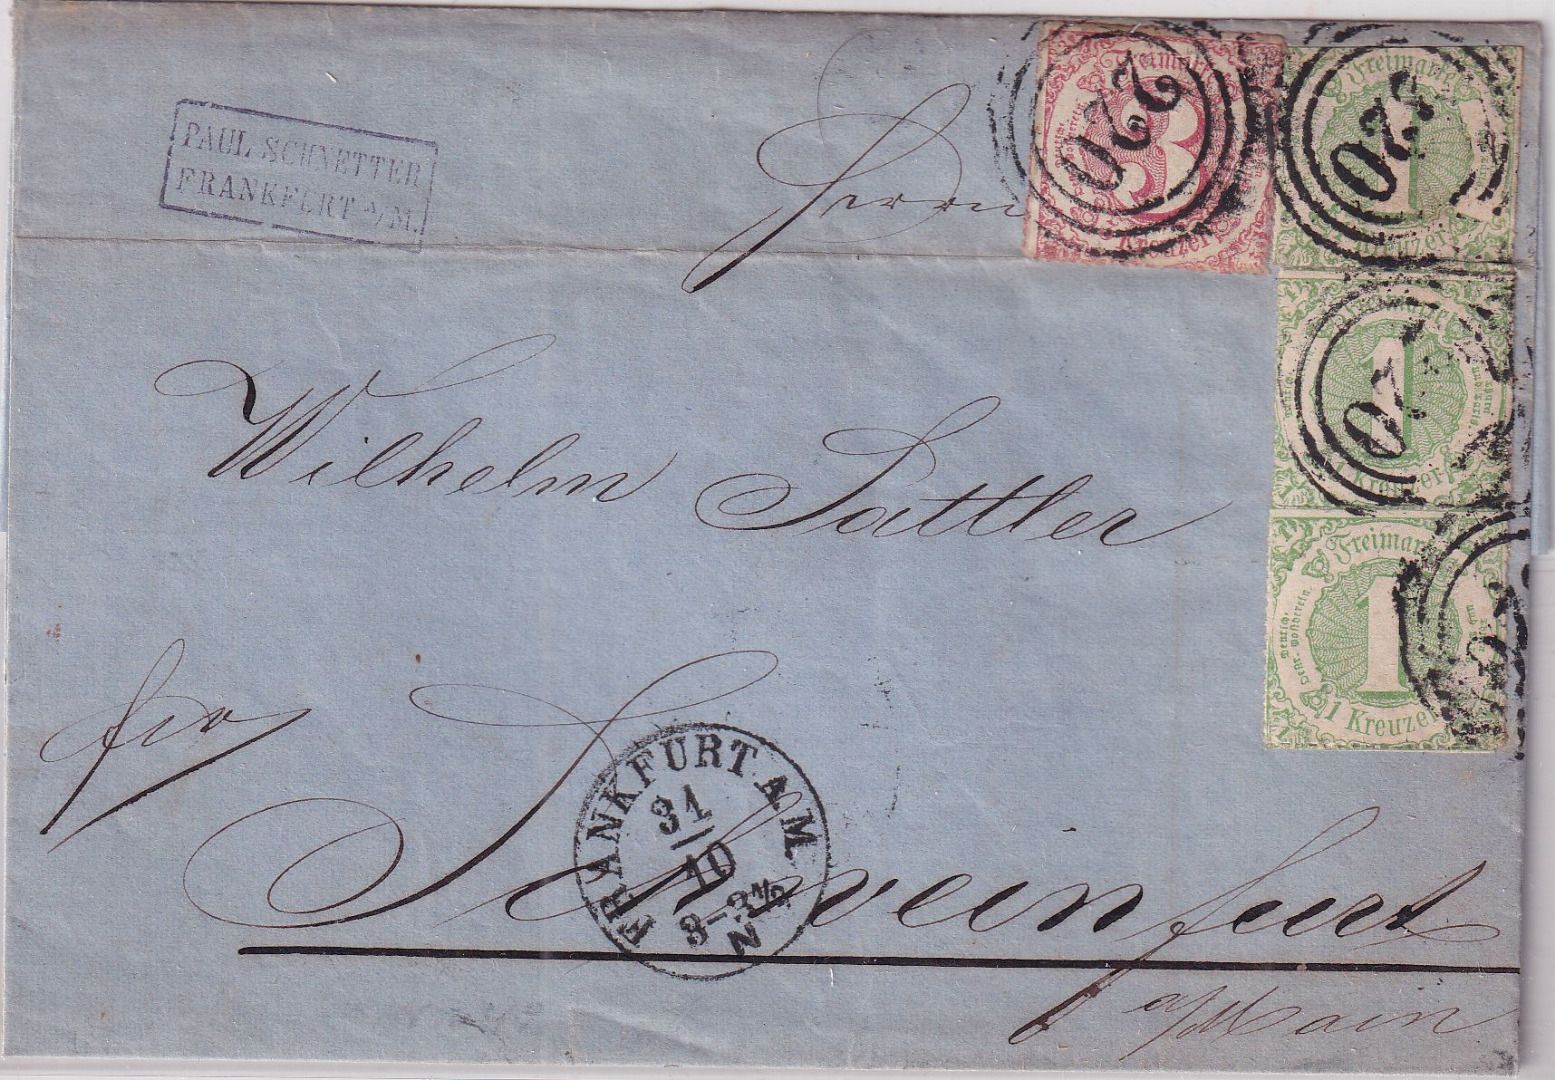 PAUL SCHNETTER
FRANKFURT a/M.
Herrn
Freimarke
3
Kreuzer
220
Freimarke
1
Kreuzer
220
Freimarke
1
1 Kreuzer
220
Freimarke
1
1 Kreuzer
Wilhelm Sattler
fro
Schweinfurt
a/Main
FRANKFURT A. M.
31
10
3-3½
N